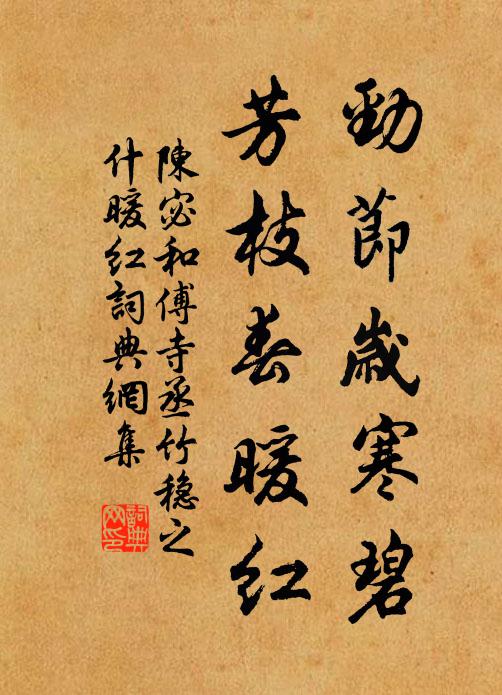 勁節歲寒碧
芳枝春暖红
陳宓和傅寺丞竹穩之
什暖红詞典網集
詞典网印